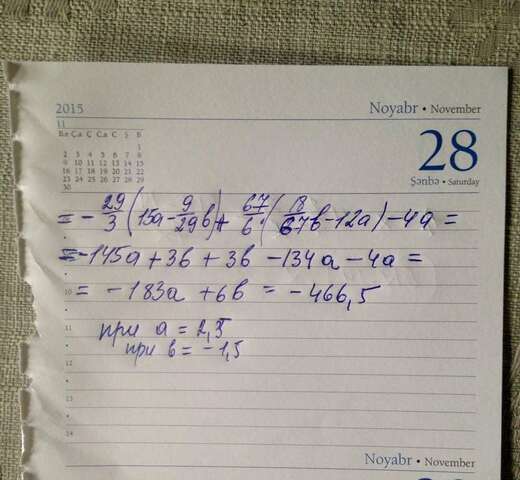 2015
Noyabr • November
11
B.e Ç.a Ç C.a C Ş B
1
2 3 4 5 6 7 8
9 10 11 12 13 14 15
16 17 18 19 20 21 22
23 24 25 26 27 28 29
30
28
Şənbə • Saturday
= - 29/3 (15a - 9/29 b) + 67/6 (18/67 b - 12a) - 4a =
= -145a + 3b + 3b - 134a - 4a =
10
= -183a + 6b = -466,5
11
при a = 2,5
при b = -1,5
12
13
14
Noyabr • November